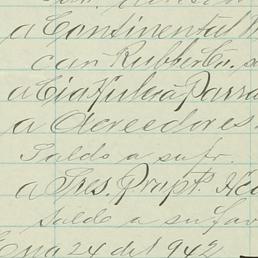 a Continental M
can Rubber Co. s
a Cia Hulera Parra
a Acreedores
Saldo a su fr.
a Tres. Propt. Hac
Saldo a su fav
Eno 24 del 942